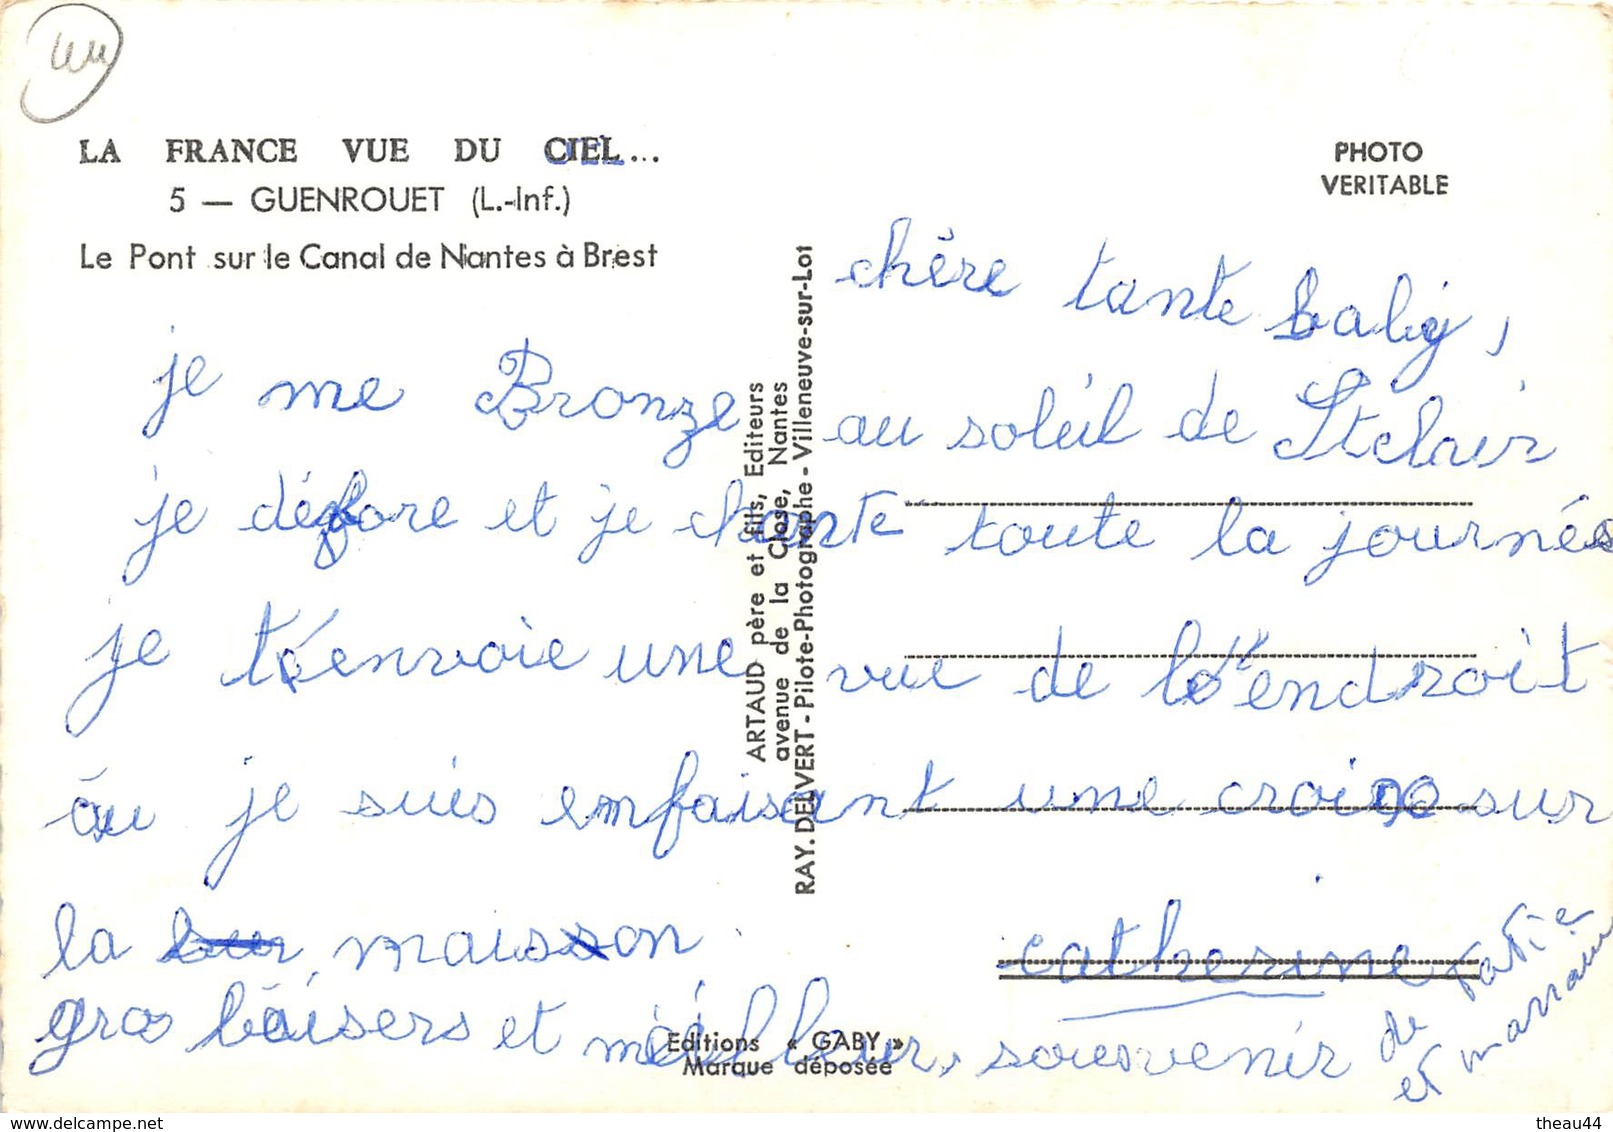 LA FRANCE VUE DU CIEL...
5 — GUENROUET (L.-Inf.)
Le Pont sur le Canal de Nantes à Brest
PHOTO
VERITABLE
chère tante baliy,
je me Bronze au soleil de St clair
je dégfore et je chante toute la journée
je t'envoie une vue de l'endroit
au je suis enfaisant une croix sur
la maison
gros baisers et meilleur, souvenir
catherine
de Katie
et marraine
ARTAUD père et fils, Editeurs
avenue de la Close, Nantes
RAY. DELVERT - Pilote-Photographe - Villeneuve-sur-Lot
Editions « GABY »
Marque déposée
delcampe.net
theau44